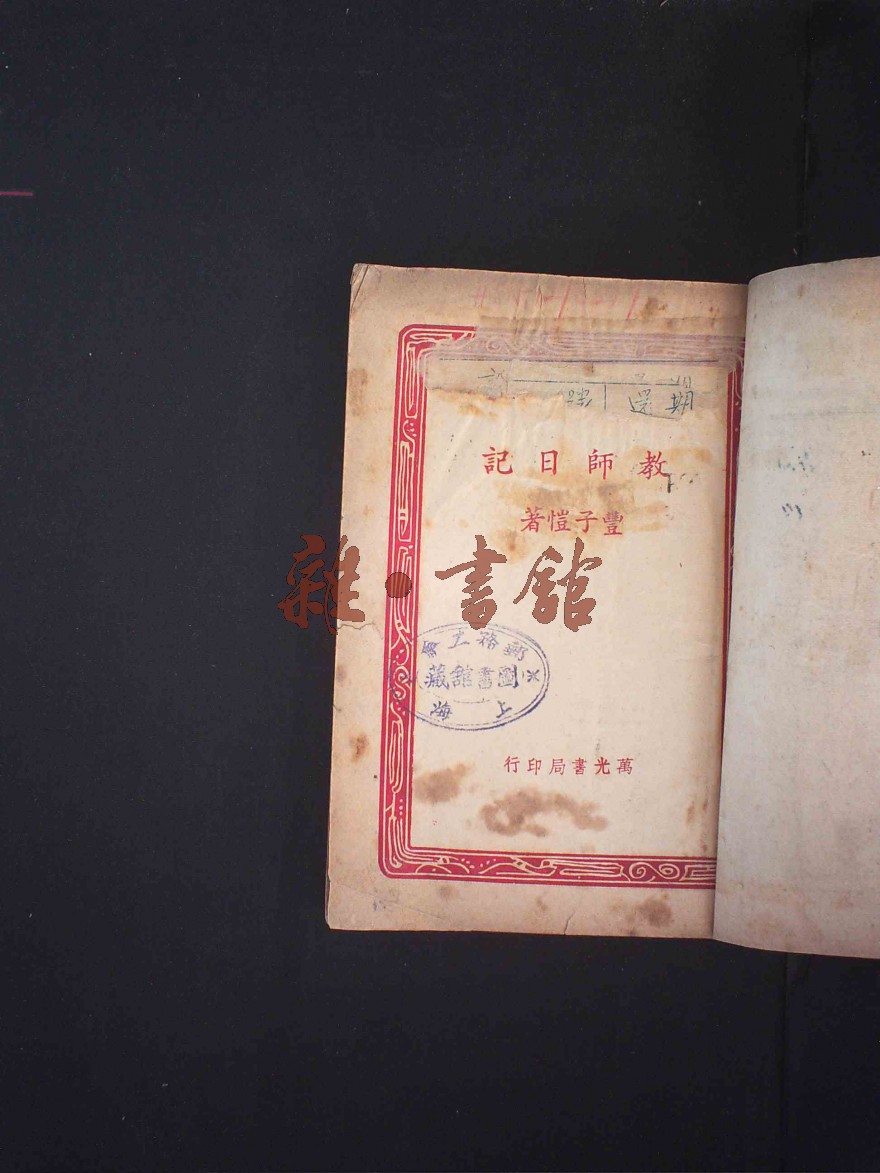 教師日記
豐子愷著
雜·書舘
郵務工會
圖書館藏
上海
萬光書局印行